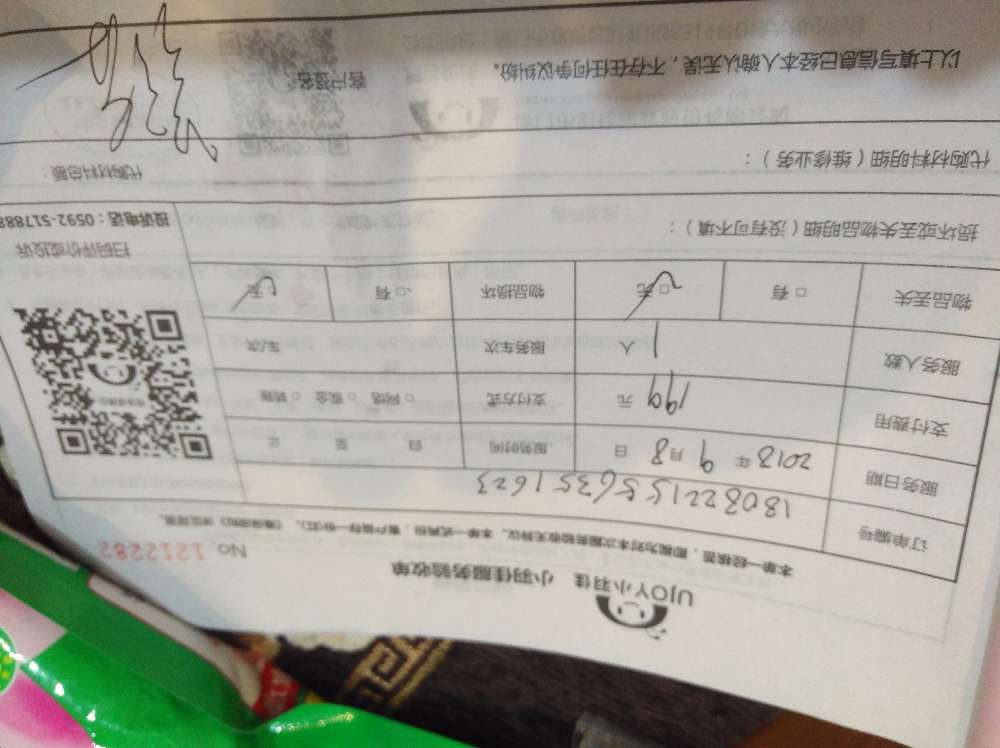 UJOY小羽佳 小羽佳服务验收单
No. 1212282
本单一经核签，即视为对本次服务验收无异议。本单一式两份，客户留存一份(红)。
订单编号 180822155635 1623
服务日期 2018 年 9 月 8 日 服务时间 自 至 止
支付费用 199 元 支付方式 □ 网络 □ 现金 □ 转账
服务人数 1 人 服务车次 车/次
物品丢失 □ 有 □ 无 物品损坏 □ 有 □ 无
扫码评价或投诉
投诉电话：0592-517888
损坏或丢失物品明细（没有可不填）：
代购材料明细（维修业务）： 代购材料总额：
以上填写信息已经本人确认无误，不存在任何争议纠纷。 客户签名：